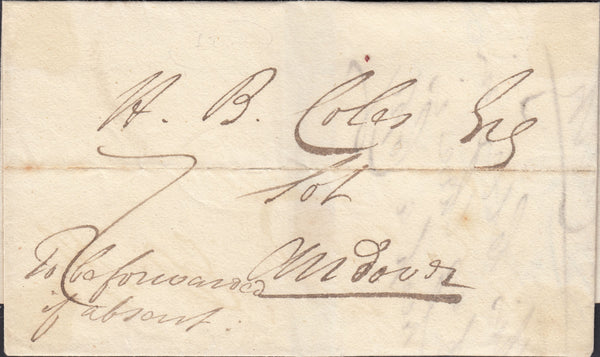 H. B. Coles Esq
Sol
Andover
To be forwarded
if absent.